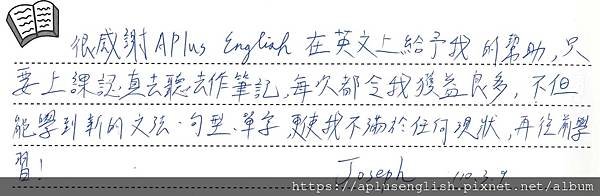 很感謝 APlus English 在英文上給予我的幫助,只
要上課認真去聽去作筆記,每次都令我獲益良多,不但
能學到新的文法、句型、單字,更使我不滿於任何現狀,再往前學
習!
Joseph 110.3.9
https://aplusenglish.pixnet.net/album